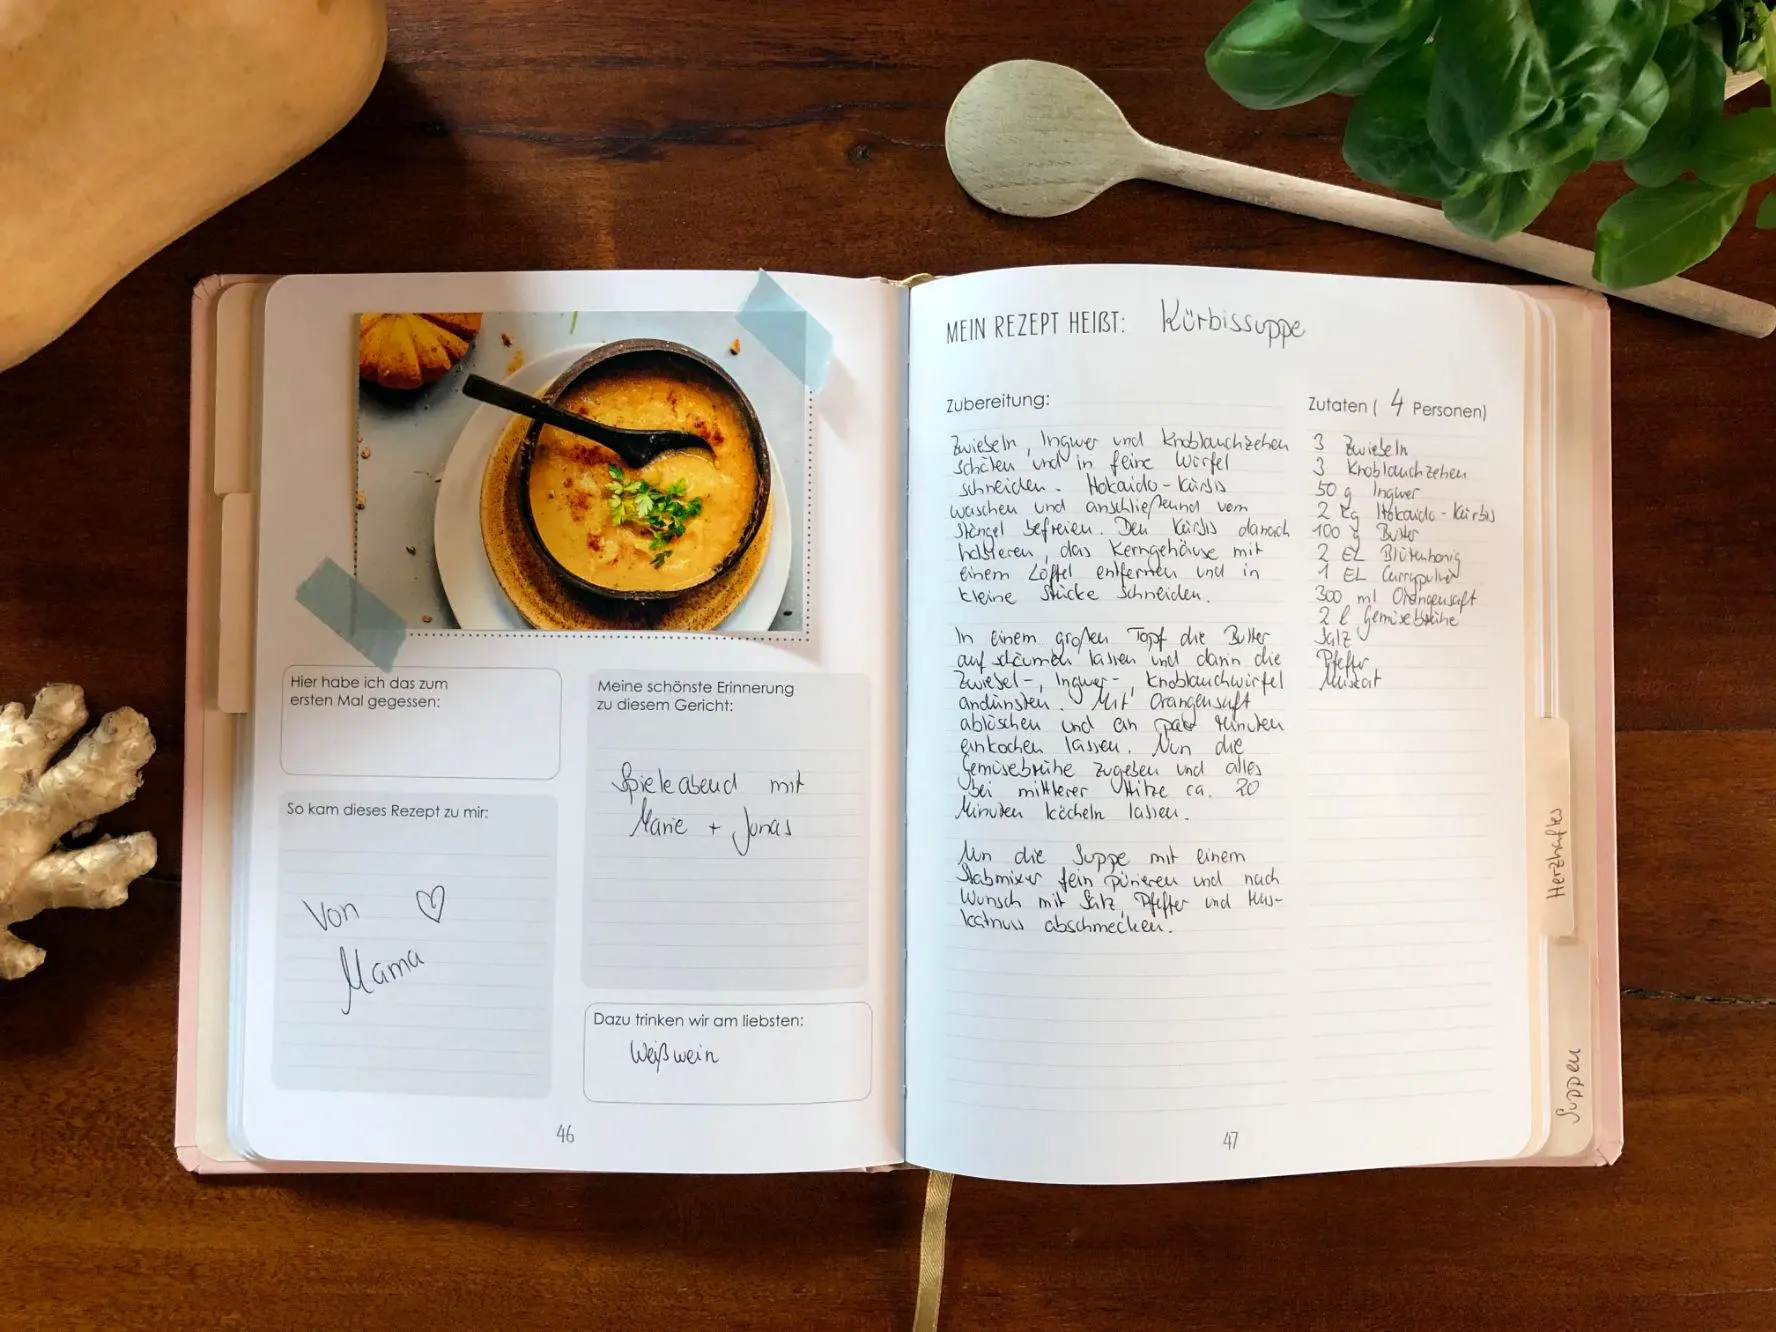 Hier habe ich das zum
ersten Mal gegessen:
So kam dieses Rezept zu mir:
Von ♡
Mama
Meine schönste Erinnerung
zu diesem Gericht:
Spieleabend mit
Marie + Jonas
Dazu trinken wir am liebsten:
Weißwein
46
MEIN REZEPT HEIßT: Kürbissuppe
Zubereitung:
Zwiebeln, Ingwer und Knoblauchzehen
schälen und in feine Würfel
schneiden. Hokaido-Kürbis
waschen und anschließend vom
Stängel befreien. Den Kürbis danach
halbieren, das Kerngehäuse mit
einem Löffel entfernen und in
kleine Stücke schneiden.
In einem großen Topf die Butter
aufschäumen lassen und darin die
Zwiebel-, Ingwer-, Knoblauchwürfel
andünsten. Mit Orangensaft
ablöschen und ein paar Minuten
einkochen lassen. Nun die
Gemüsebrühe zugeben und alles
bei mittlerer Hitze ca. 20
Minuten köcheln lassen.
Nun die Suppe mit einem
Stabmixer fein pürieren und nach
Wunsch mit Salz, Pfeffer und Mus-
katnuss abschmecken.
Zutaten ( 4 Personen)
3 Zwiebeln
3 Knoblauchzehen
50 g Ingwer
2 kg Hokaido-Kürbis
100 g Butter
2 EL Blütenhonig
1 EL Currypulver
300 ml Orangensaft
2 l Gemüsebrühe
Salz
Pfeffer
Muskat
47
Herzhaftes
Suppen